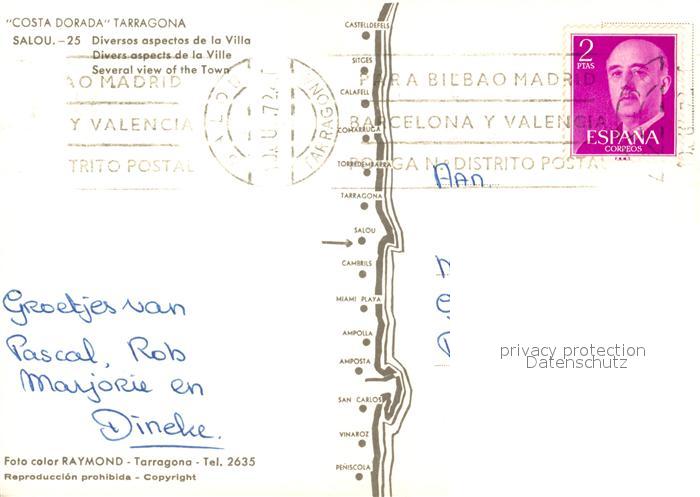 "COSTA DORADA" TARRAGONA
SALOU. - 25 Diversos aspectos de la Villa
Divers aspects de la Ville
Several view of the Town
AO MADRID
Y VALENCIA
STRITO POSTAL
TARRAGONA
PARA BILBAO MADRID
BARCELONA Y VALENCIA
PONGA Nº DISTRITO POSTAL
2
PTAS
ESPAÑA
CORREOS
F.N.M.T.
CASTELLDEFELS
SITGES
CALAFELL
COMARRUGA
TORREDEMBARRA
TARRAGONA
SALOU
CAMBRILS
MIAMI PLAYA
AMPOLLA
AMPOSTA
SAN CARLOS
VINAROZ
PEÑISCOLA
Aan
Groetjes van
Pascal, Rob
Marjorie en
Dineke.
privacy protection
Datenschutz
Foto color RAYMOND - Tarragona - Tel. 2635
Reproducción prohibida - Copyright